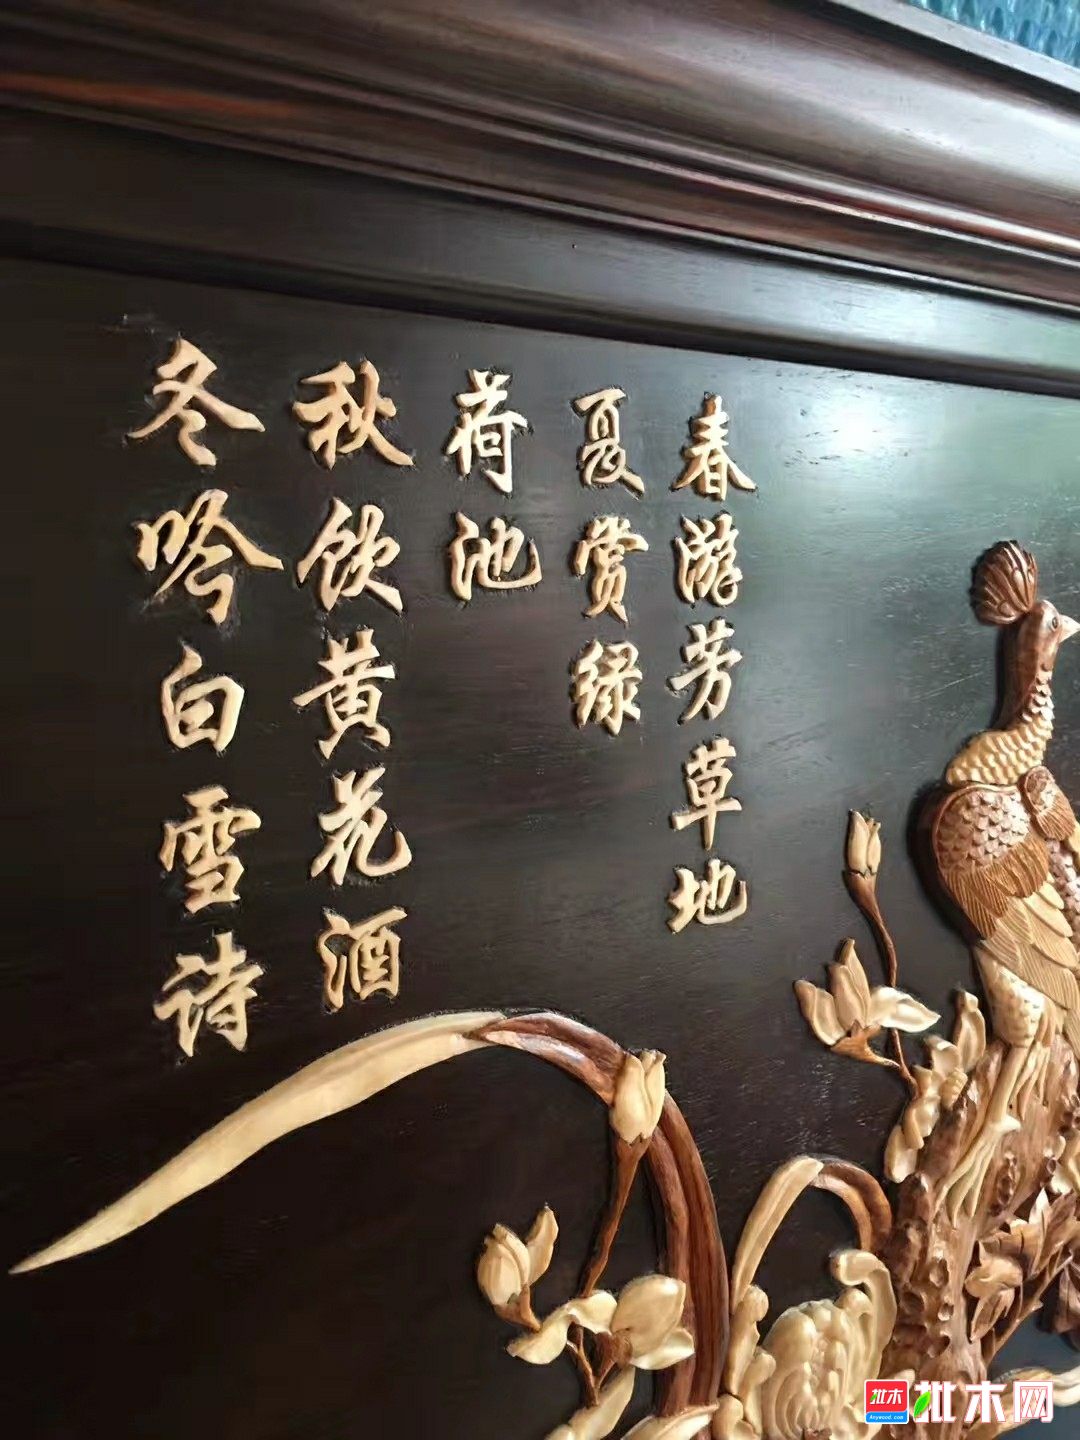 春游芳草地
夏赏绿
荷池
秋饮黄花酒
冬吟白雪诗
批木
Anywood.com
批木网